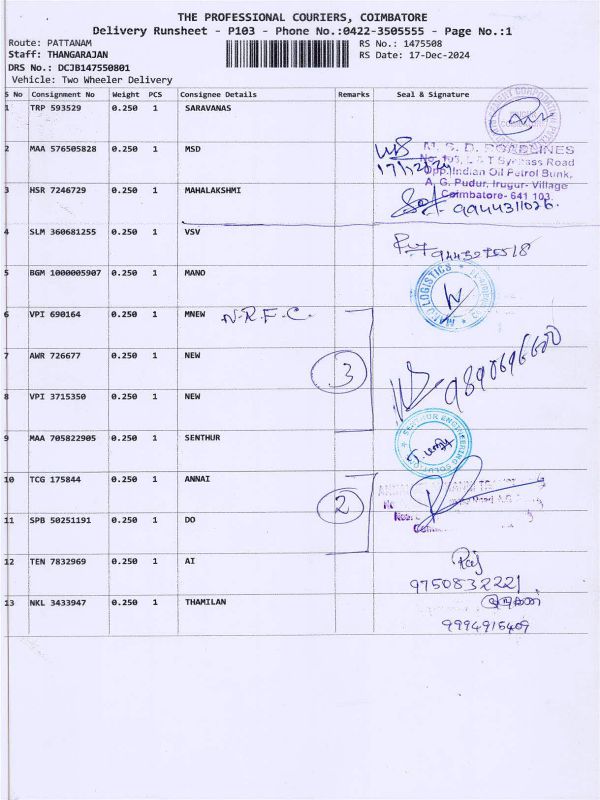 THE PROFESSIONAL COURIERS, COIMBATORE
Delivery Runsheet - P103 - Phone No.:0422-3505555 - Page No.:1
Route: PATTANAM
RS No.: 1475508
Staff: THANGARAJAN
RS Date: 17-Dec-2024
DRS No.: DCJB147550801
Vehicle: Two Wheeler Delivery
S No Consignment No Weight PCS Consignee Details Remarks Seal & Signature
1 TRP 593529 0.250 1 SARAVANAS
2 MAA 576505828 0.250 1 MSD
17/12/24
M. S. D. ROADLINES
No. 103, L & T Bypass Road
Opp. Indian Oil Petrol Bunk,
A. G. Pudur, Irugur- Village
Coimbatore- 641 103.
3 HSR 7246729 0.250 1 MAHALAKSHMI
9944311026.
4 SLM 360681255 0.250 1 VSV
5 BGM 1000005907 0.250 1 MANO
LOGISTICS
6 VPI 690164 0.250 1 MNEW N.R.F.C.
7 AWR 726677 0.250 1 NEW
3
8 VPI 3715350 0.250 1 NEW
9890696600
9 MAA 705822905 0.250 1 SENTHUR
SENTHUR ENGINEERING SOLUTIONS
10 TCG 175844 0.250 1 ANNAI
2
11 SPB 50251191 0.250 1 DO
12 TEN 7832969 0.250 1 AI
Raj
9750832221
13 NKL 3433947 0.250 1 THAMILAN
9994915409